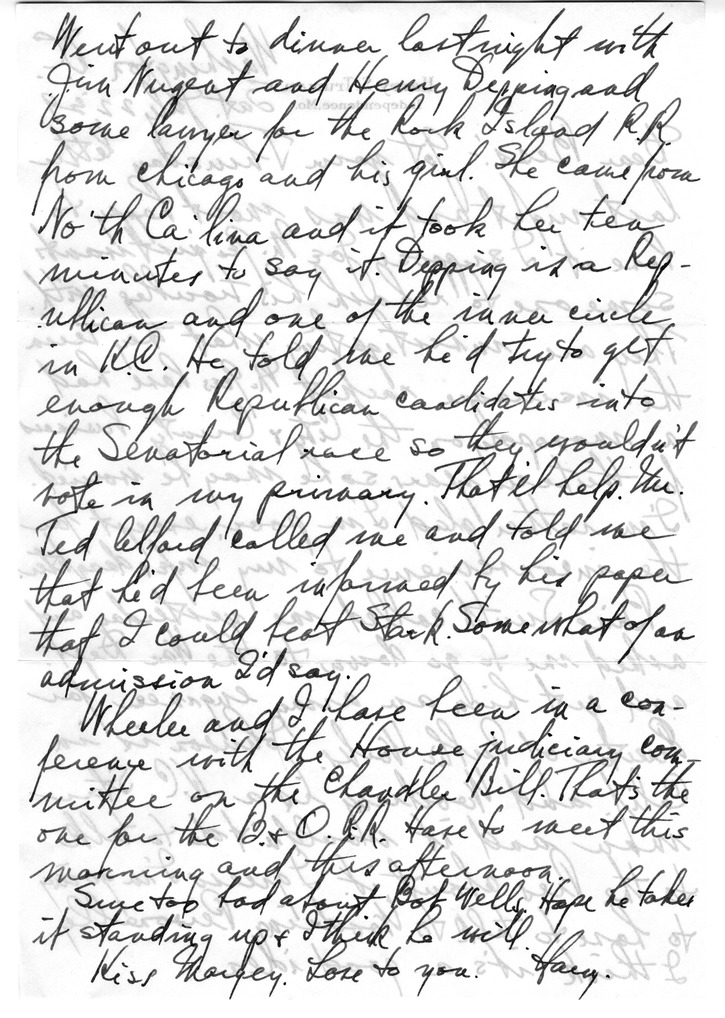 Went out to dinner last night with
Jim Nugent and Henry Depping and
some lawyer for the Rock Island R.R.
from Chicago and his girl. She came from
No'th Ca'lina and it took her ten
minutes to say it. Depping is a Rep-
ublican and one of the inner circle
in K.C. He told me he'd try to get
enough Republican candidates into
the Senatorial race so they wouldn't
vote in my primary. That'll help. Mr.
Ted Alford called me and told me
that he'd been informed by his paper
that I could beat Stark. Somewhat of an
admission I'd say.
Wheeler and I have been in a con-
ference with the House judiciary com-
mittee on the Chandler Bill. That's the
one for the B. & O. R.R. Have to meet this
morning and this afternoon.
Sure too bad about Bob Wells. Hope he takes
it standing up & I think he will.
Kiss Margey. Love to you. Harry.